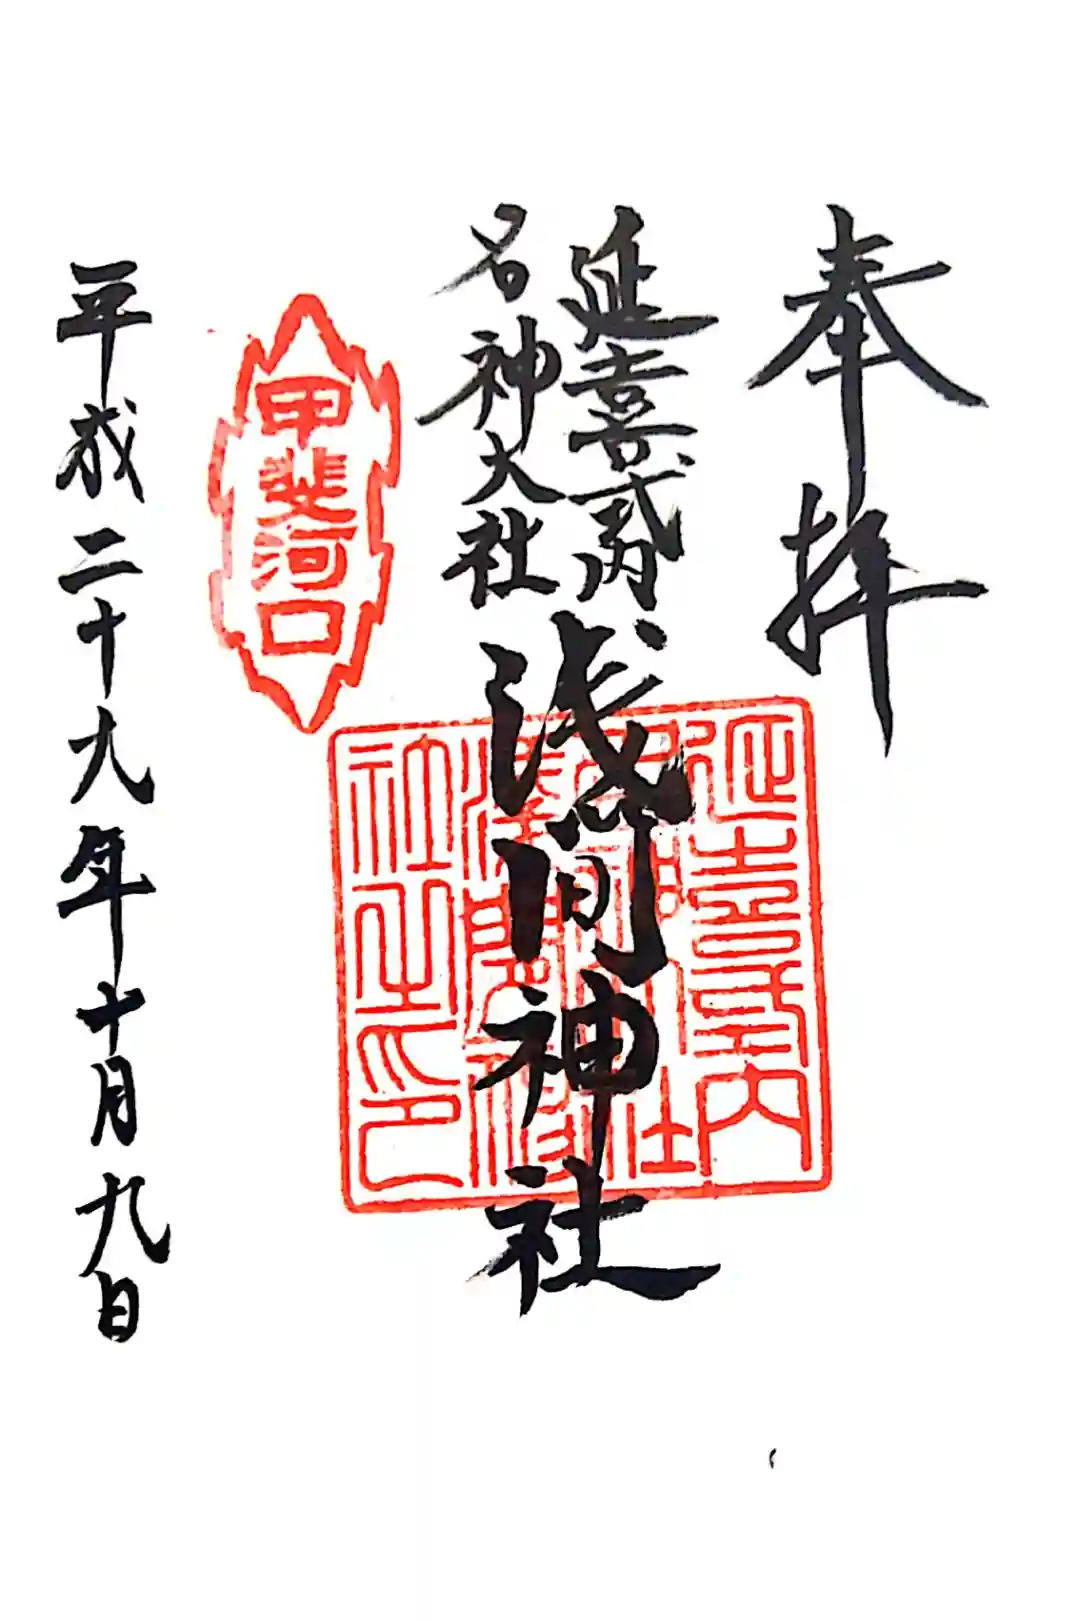 奉拝
延喜式内
名神大社
浅间神社
延喜式内
社之印
甲斐河口
平成二十九年十月九日